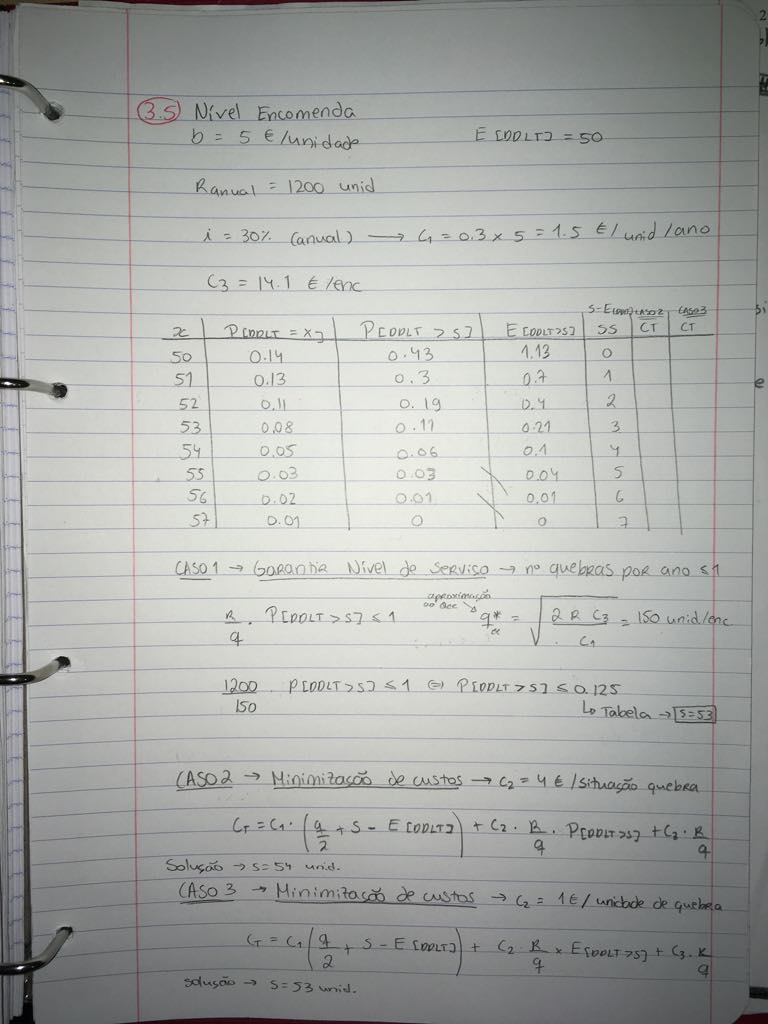 3.5 Nível Encomenda
b = 5 €/unidade E[DDLT] = 50
Ranual = 1200 unid
i = 30% (anual) → C1 = 0.3 x 5 = 1.5 €/unid/ano
C3 = 14.1 €/enc
S-E[DDLT] CASO 2 CASO 3
x P[DDLT = x] P[DDLT > S] E[DDLT>S] SS CT CT
50 0.14 0.43 1.13 0
51 0.13 0.3 0.7 1
52 0.11 0.19 0.4 2
53 0.08 0.11 0.21 3
54 0.05 0.06 0.1 4
55 0.03 0.03 0.04 5
56 0.02 0.01 0.01 6
57 0.01 0 0 7
CASO 1 → Garantir Nível de serviço → nº quebras por ano ≤ 1
aproximação
R/q . P[DDLT > S] ≤ 1 q* = √(2 R C3 / C1) = 150 unid/enc
1200/150 . P[DDLT > S] ≤ 1 ⇔ P[DDLT > S] ≤ 0.125
↳ Tabela → S=53
CASO 2 → Minimização de custos → C2 = 4 € /situação quebra
CT = C1 . (q/2 + S - E[DDLT]) + C2 . R/q . P[DDLT>S] + C3 . R/q
Solução → S = 54 unid.
CASO 3 → Minimização de custos → C2 = 1 € / unidade de quebra
CT = C1 (q/2 + S - E[DDLT]) + C2 . R/q x E[DDLT >S] + C3 . R/q
solução → S = 53 unid.